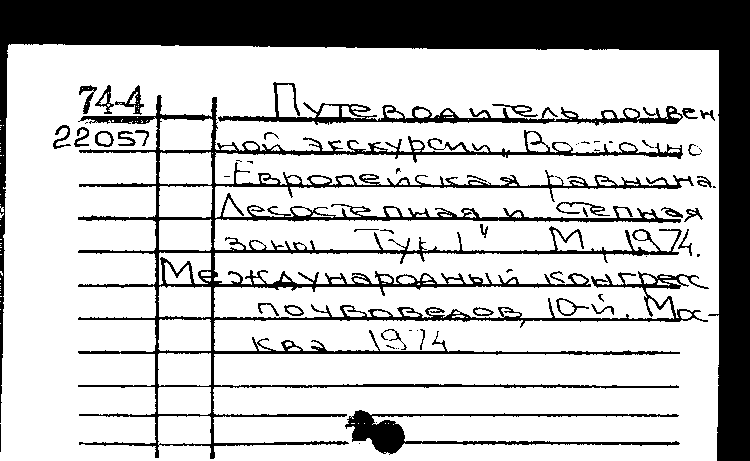 74-4
22057
Путеводитель почвен-
ной экскурсии „Восточно
-Европейская равнина.
Лесостепная и степная
зоны. Тур 1" М., 1974.
Международный конгресс
почвоведов, 10-й. Мос-
ква 1974